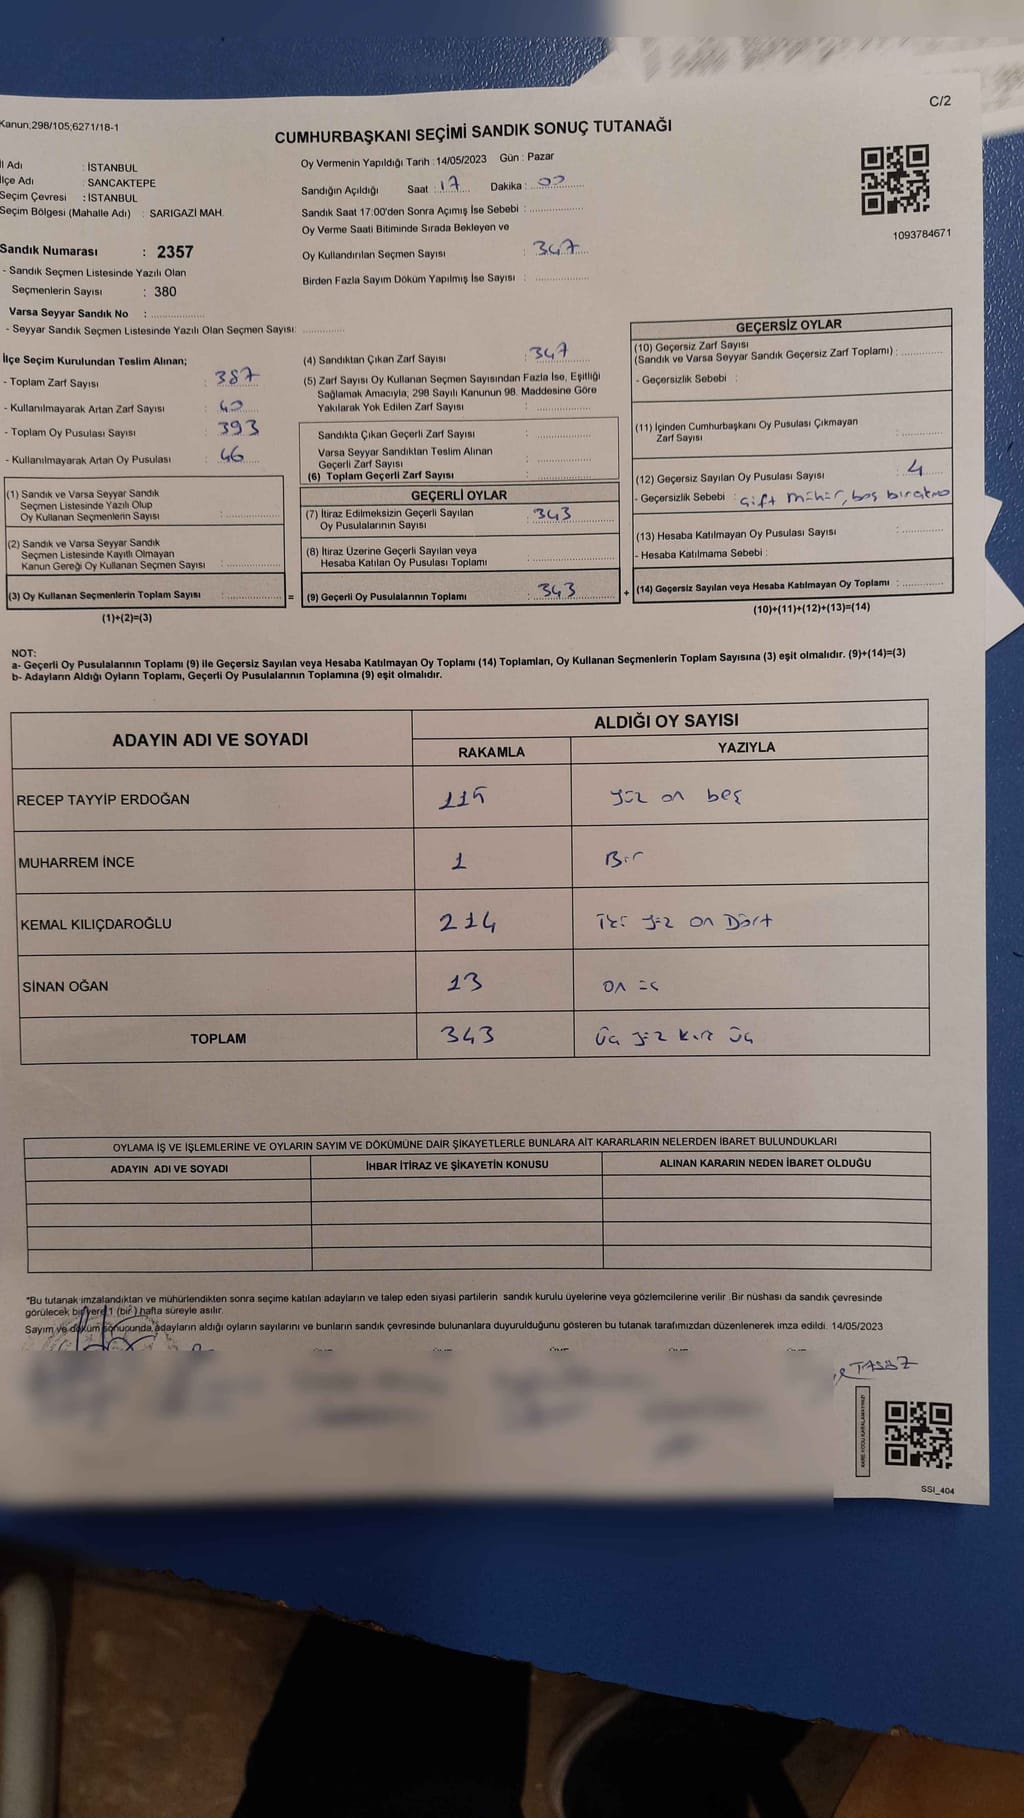 C/2
Kanun;298/105;6271/18-1
CUMHURBAŞKANI SEÇİMİ SANDIK SONUÇ TUTANAĞI
İl Adı : İSTANBUL
İlçe Adı : SANCAKTEPE
Seçim Çevresi : İSTANBUL
Seçim Bölgesi (Mahalle Adı) : SARIGAZİ MAH.
Oy Vermenin Yapıldığı Tarih : 14/05/2023 Gün : Pazar
Sandığın Açıldığı Saat : 17 Dakika : 00
Sandık Saat 17:00'den Sonra Açımış İse Sebebi :
Oy Verme Saati Bitiminde Sırada Bekleyen ve
Oy Kullandırılan Seçmen Sayısı : 347
Birden Fazla Sayım Döküm Yapılmış İse Sayısı :
1093784671
Sandık Numarası : 2357
- Sandık Seçmen Listesinde Yazılı Olan
Seçmenlerin Sayısı : 380
Varsa Seyyar Sandık No :
- Seyyar Sandık Seçmen Listesinde Yazılı Olan Seçmen Sayısı:
İlçe Seçim Kurulundan Teslim Alınan;
- Toplam Zarf Sayısı : 387
- Kullanılmayarak Artan Zarf Sayısı : 40
- Toplam Oy Pusulası Sayısı : 393
- Kullanılmayarak Artan Oy Pusulası : 46
(1) Sandık ve Varsa Seyyar Sandık
Seçmen Listesinde Yazılı Olup
Oy Kullanan Seçmenlerin Sayısı :
(2) Sandık ve Varsa Seyyar Sandık
Seçmen Listesinde Kayıtlı Olmayan
Kanun Gereği Oy Kullanan Seçmen Sayısı :
(3) Oy Kullanan Seçmenlerin Toplam Sayısı : =
(1)+(2)=(3)
(4) Sandıktan Çıkan Zarf Sayısı : 347
(5) Zarf Sayısı Oy Kullanan Seçmen Sayısından Fazla İse, Eşitliği
Sağlamak Amacıyla; 298 Sayılı Kanunun 98. Maddesine Göre
Yakılarak Yok Edilen Zarf Sayısı :
Sandıkta Çıkan Geçerli Zarf Sayısı :
Varsa Seyyar Sandıktan Teslim Alınan
Geçerli Zarf Sayısı :
(6) Toplam Geçerli Zarf Sayısı :
GEÇERLİ OYLAR
(7) İtiraz Edilmeksizin Geçerli Sayılan
Oy Pusulalarının Sayısı : 343
(8) İtiraz Üzerine Geçerli Sayılan veya
Hesaba Katılan Oy Pusulası Toplamı :
(9) Geçerli Oy Pusulalarının Toplamı : 343 +
GEÇERSİZ OYLAR
(10) Geçersiz Zarf Sayısı
(Sandık ve Varsa Seyyar Sandık Geçersiz Zarf Toplamı) :
- Geçersizlik Sebebi :
(11) İçinden Cumhurbaşkanı Oy Pusulası Çıkmayan
Zarf Sayısı :
(12) Geçersiz Sayılan Oy Pusulası Sayısı : 4
- Geçersizlik Sebebi : çift mühür, boş bırakma
(13) Hesaba Katılmayan Oy Pusulası Sayısı :
- Hesaba Katılmama Sebebi :
(14) Geçersiz Sayılan veya Hesaba Katılmayan Oy Toplamı :
(10)+(11)+(12)+(13)=(14)
NOT:
a- Geçerli Oy Pusulalarının Toplamı (9) ile Geçersiz Sayılan veya Hesaba Katılmayan Oy Toplamı (14) Toplamları, Oy Kullanan Seçmenlerin Toplam Sayısına (3) eşit olmalıdır. (9)+(14)=(3)
b- Adayların Aldığı Oyların Toplamı, Geçerli Oy Pusulalarının Toplamına (9) eşit olmalıdır.
ADAYIN ADI VE SOYADI
ALDIĞI OY SAYISI
RAKAMLA YAZIYLA
RECEP TAYYİP ERDOĞAN 115 yüz on beş
MUHARREM İNCE 1 Bir
KEMAL KILIÇDAROĞLU 214 iki yüz on Dört
SİNAN OĞAN 13 on üç
TOPLAM 343 üç yüz kırk üç
OYLAMA İŞ VE İŞLEMLERİNE VE OYLARIN SAYIM VE DÖKÜMÜNE DAİR ŞİKAYETLERLE BUNLARA AİT KARARLARIN NELERDEN İBARET BULUNDUKLARI
ADAYIN ADI VE SOYADI İHBAR İTİRAZ VE ŞİKAYETİN KONUSU ALINAN KARARIN NEDEN İBARET OLDUĞU
*Bu tutanak imzalandıktan ve mühürlendikten sonra seçime katılan adayların ve talep eden siyasi partilerin sandık kurulu üyelerine veya gözlemcilerine verilir. Bir nüshası da sandık çevresinde
görülecek bir yere 1 (bir) hafta süreyle asılır.
Sayım ve döküm sonucunda adayların aldığı oyların sayılarını ve bunların sandık çevresinde bulunanlara duyurulduğunu gösteren bu tutanak tarafımızdan düzenlenerek imza edildi. 14/05/2023
KARE KODU KARALAMAYINIZ!
SSI_404